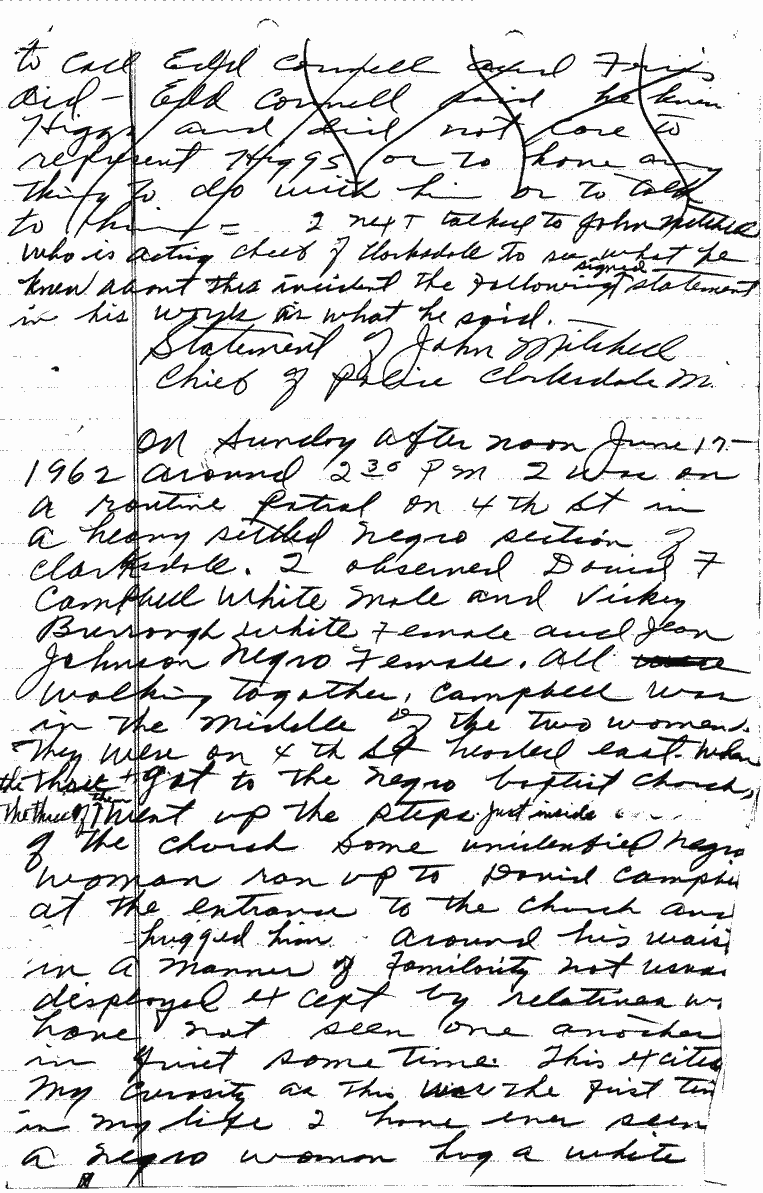 to call Edd Connell and Friis
did - Edd Connell said he knew
Higgs and did not care to
represent Higgs or to have any
thing to do with him or to talk
to him = I next talked to John Mitchell
who is acting cheef of Clarksdale to see what he
knew about this incident the following signed statement
in his words is what he said.
Statement of John Mitchell
Chief of Police Clarksdale Mi.
On Sunday after noon June 17-
1962 around 2 30 PM I was on
a routine patrol on 4 th St in
a heavy settled negro section of
Clarksdale. I observed David F
Campbell White Male and Vickey
Burrough white Female and Jean
Johnson Negro Female. All were
walking together, Campbell was
in the middle of the two women.
They were on 4 th St headed east. When
the three got to the negro baptist church,
The three of them went up the steps. just inside
of the church some unidentified negro
woman ran up to David Campbe
at the entrance to the church and
hugged him around his wais
in a manner of familority not usua
displayed except by relatives w
have not seen one another
in quiet some time. This excited
my curosity as this was the first tim
in my life I have ever seen
a negro woman hug a white